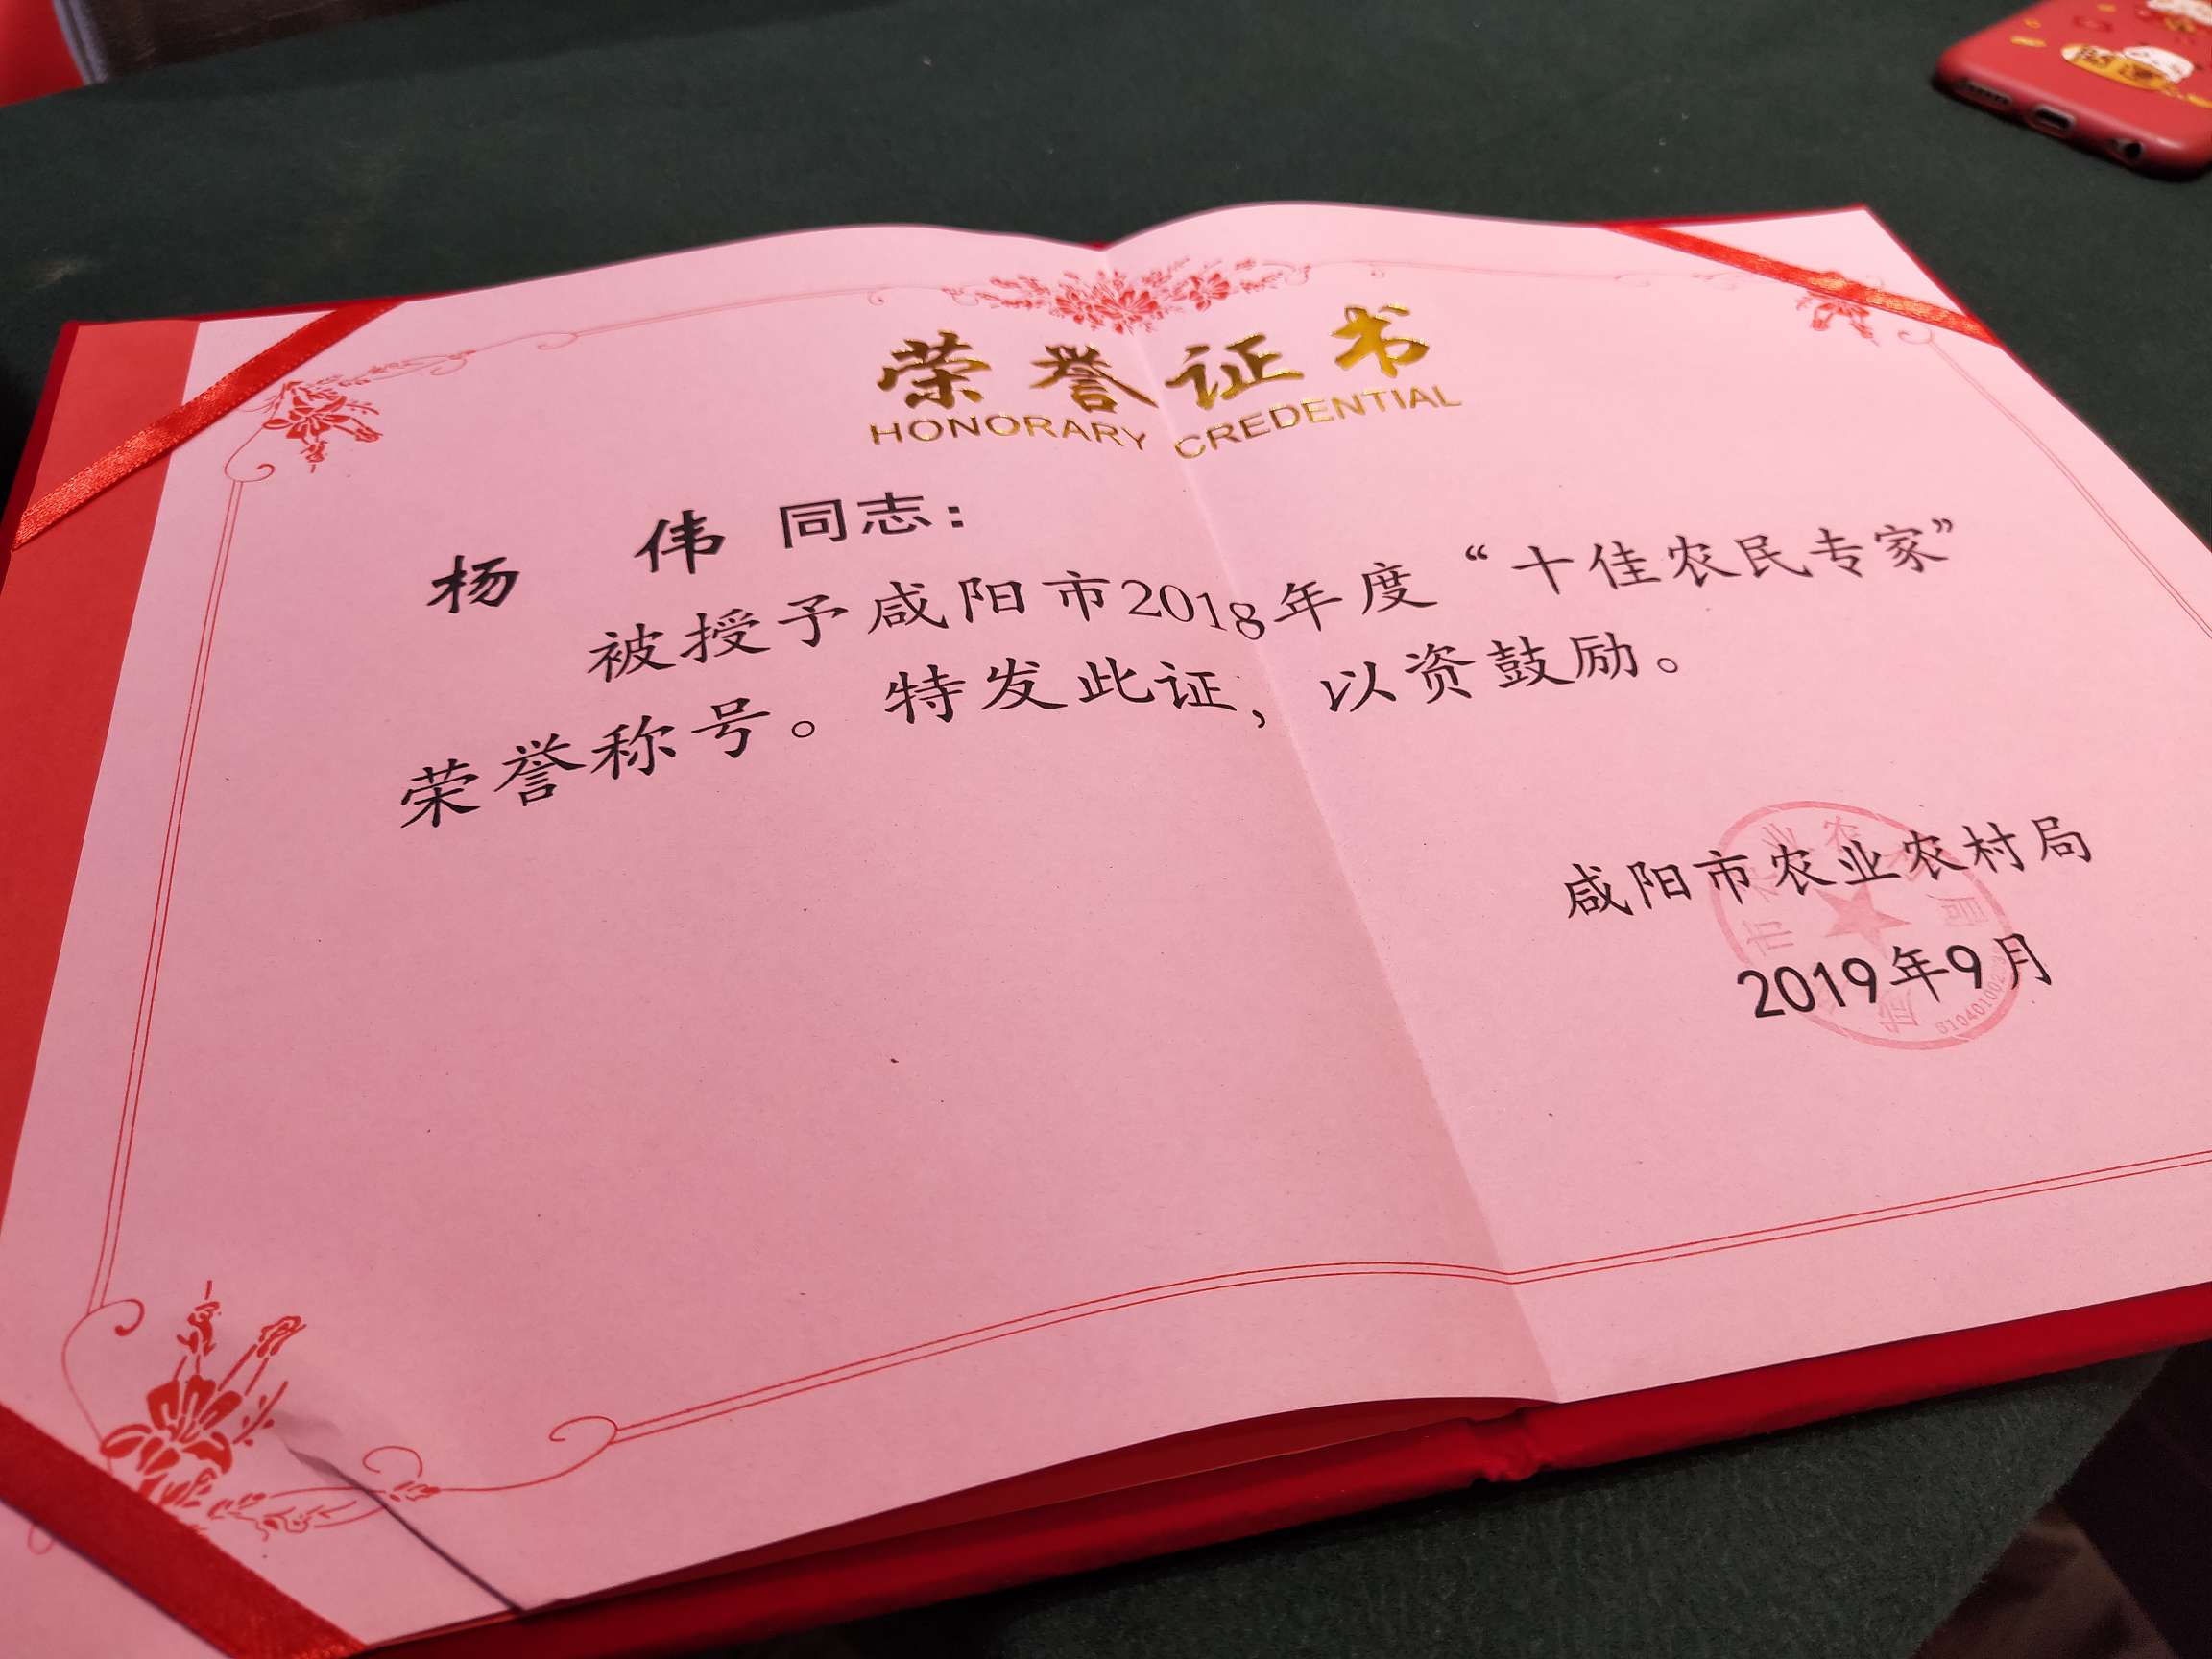 荣誉证书
HONORARY CREDENTIAL
杨 伟 同志：
被授予咸阳市2018年度“十佳农民专家”
荣誉称号。特发此证，以资鼓励。
咸阳市农业农村局
2019年9月